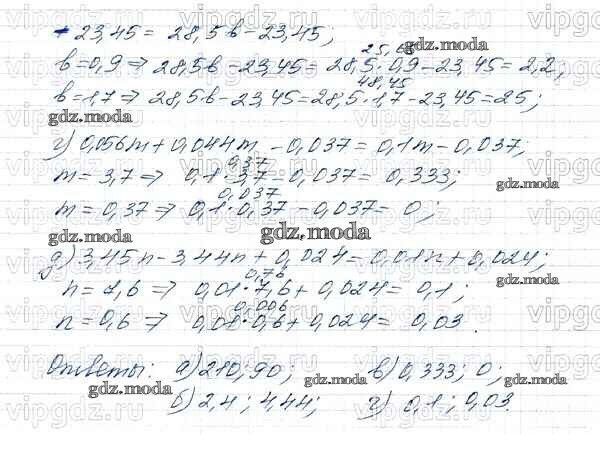 - 23,45 = 28,5b - 23,45;
25,65
b = 0,9 => 28,5b - 23,45 = 28,5 · 0,9 - 23,45 = 2,2;
48,45
b = 1,7 => 28,5b - 23,45 = 28,5 · 1,7 - 23,45 = 25;
г) 0,056m + 0,044m - 0,037 = 0,1m - 0,037;
0,37
m = 3,7 => 0,1 · 3,7 - 0,037 = 0,333;
0,037
m = 0,37 => 0,1 · 0,37 - 0,037 = 0;
д) 3,45n - 3,44n + 0,024 = 0,01n + 0,024;
0,076
n = 7,6 => 0,01 · 7,6 + 0,024 = 0,1;
0,006
n = 0,6 => 0,01 · 0,6 + 0,024 = 0,03.
Ответы: а) 210; 90; в) 0,333; 0;
б) 2,4; 4,44; г) 0,1; 0,03.
gdz.moda
vipgdz.ru